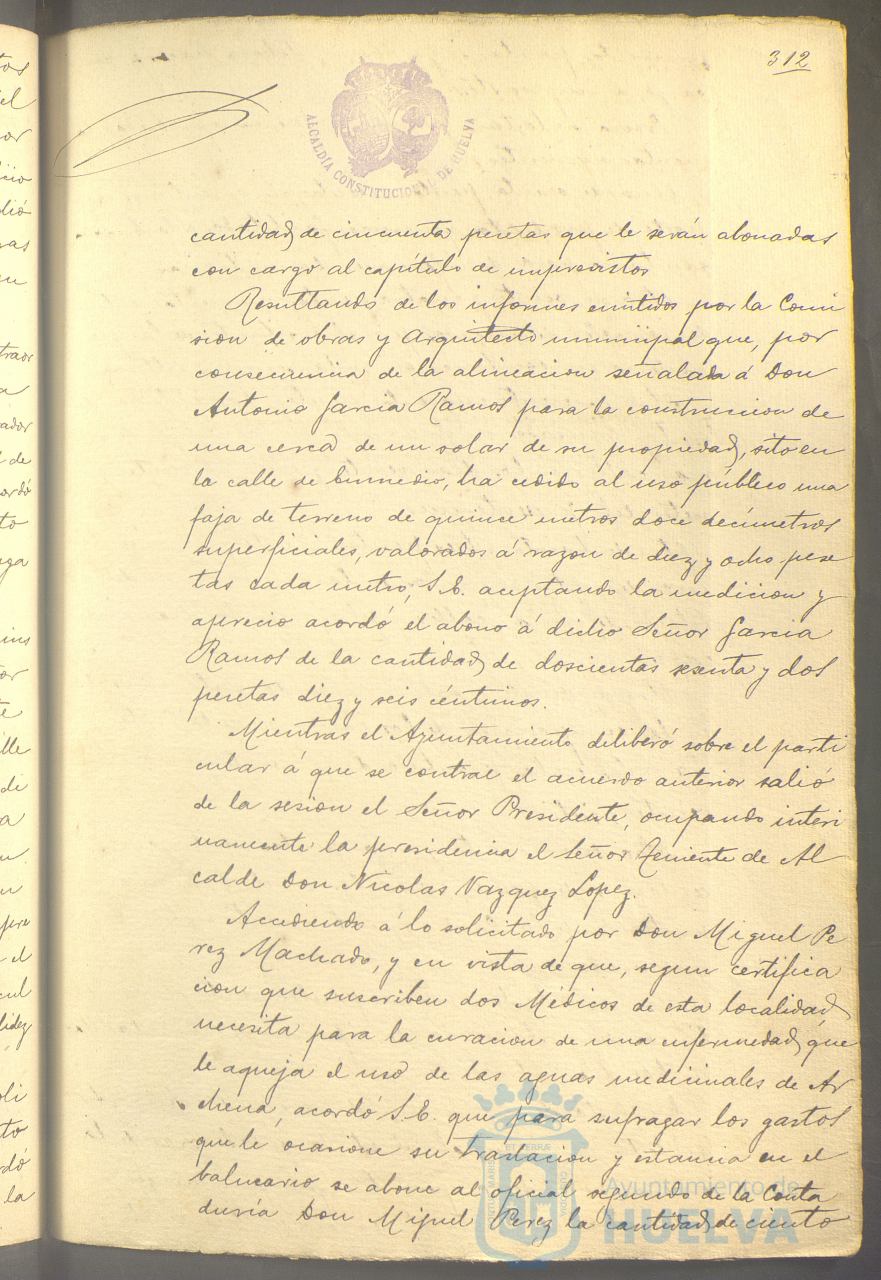 312
ALCALDÍA CONSTITUCIONAL DE HUELVA
cantidad de cincuenta pesetas que le serán abonadas
con cargo al capítulo de imprevistos
Resultando de los informes emitidos por la Comi
sion de obras y Arquitecto municipal que, por
consecuencia de la alineacion señalada á Don
Antonio Garcia Ramos para la construccion de
una cerca de un solar de su propiedad, sito en
la calle de Enmedio, ha cedido al uso público una
faja de terreno de quince metros doce decímetros
superficiales, valorados á razon de diez y ocho pese
tas cada metro, S. E. aceptando la medicion y
aprecio acordó el abono á dicho Señor Garcia
Ramos de la cantidad de doscientas sesenta y dos
pesetas diez y seis céntimos.
Mientras el Ayuntamiento deliberó sobre el parti
cular á que se contrae el acuerdo anterior salió
de la sesion el Señor Presidente, ocupando interi
namente la presidencia el Señor Teniente de Al
calde Don Nicolas Vazquez Lopez.
Accediendo á lo solicitado por Don Miguel Pe
rez Machado, y en vista de que, segun certifica
cion que suscriben dos Médicos de esta localidad,
necesita para la curacion de una enfermedad que
le aqueja el uso de las aguas medicinales de Ar
chena, acordó S. E. que para sufragar los gastos
que le ocasione su traslacion y estancia en el
balneario se abone al oficial segundo de la Conta
duría Don Miguel Perez la cantidad de ciento
Ayuntamiento de
HUELVA